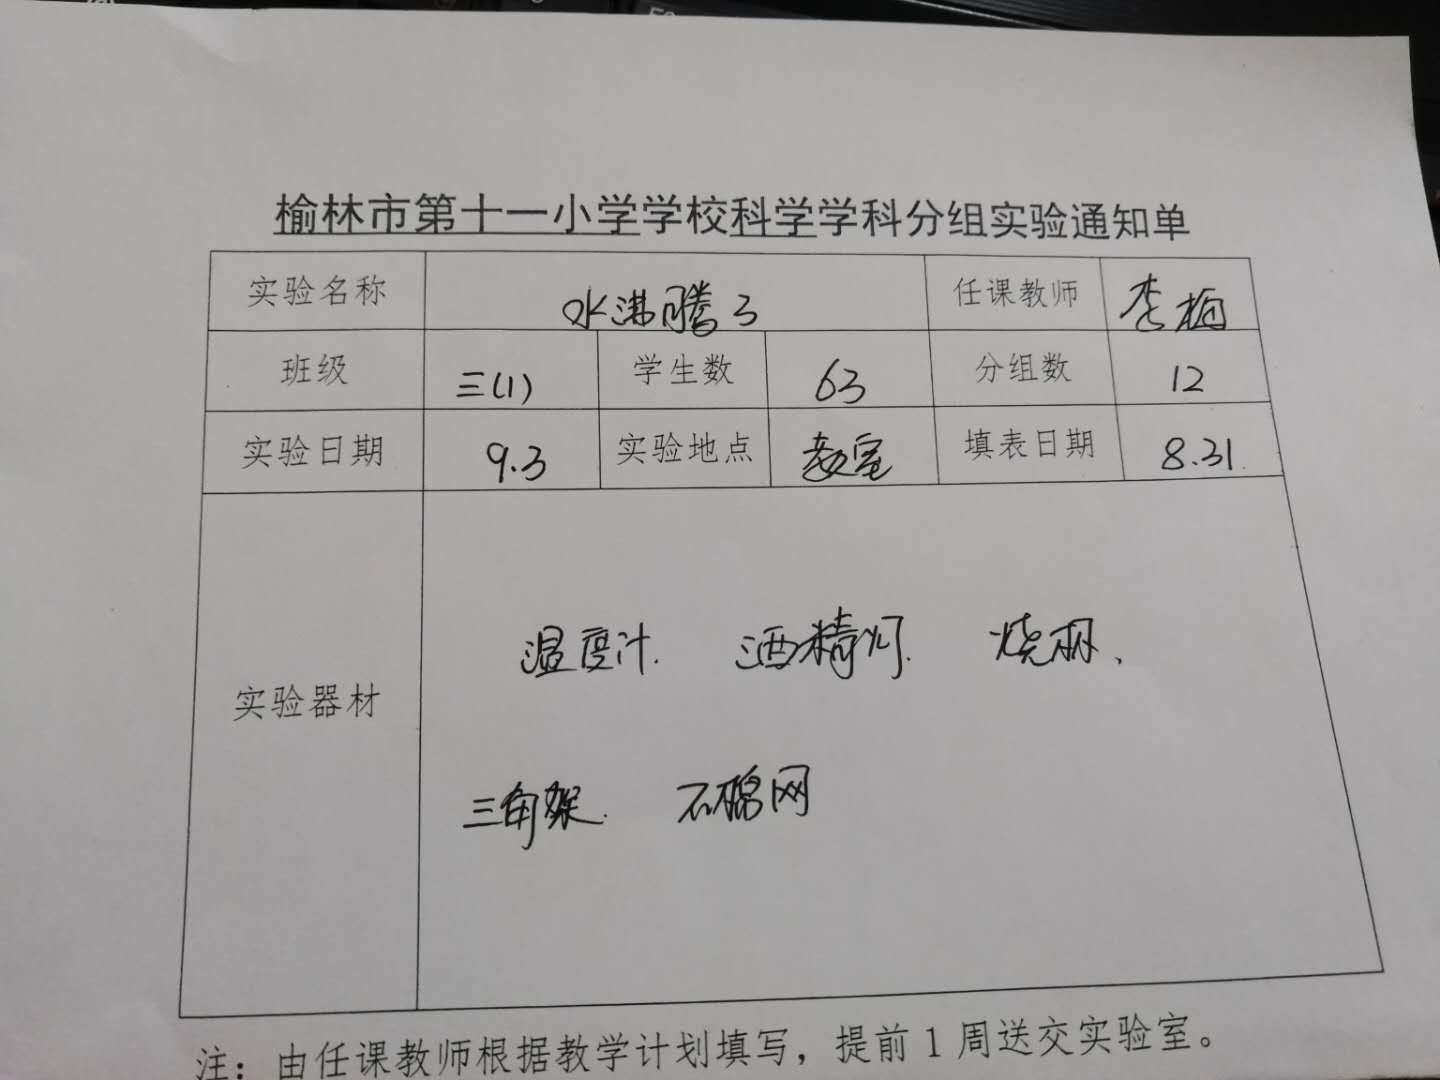 榆林市第十一小学学校科学学科分组实验通知单
实验名称 水沸腾了 任课教师 李梅
班级 三(1) 学生数 63 分组数 12
实验日期 9.3 实验地点 教室 填表日期 8.31
温度计. 酒精灯. 烧杯、
实验器材
三角架. 石棉网
注：由任课教师根据教学计划填写，提前1周送交实验室。